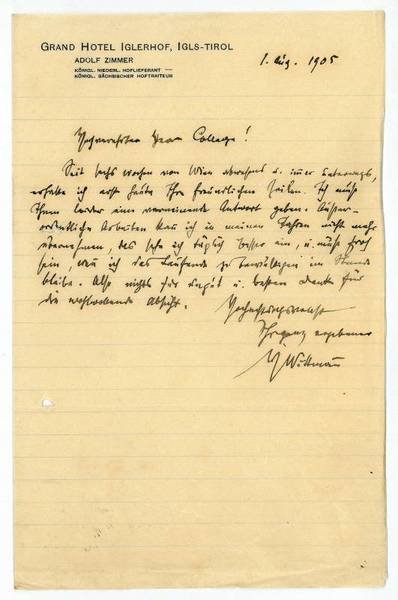 GRAND HOTEL IGLERHOF, IGLS-TIROL
ADOLF ZIMMER
KÖNIGL. NIEDERL. HOFLIEFERANT
KÖNIGL. SÄCHSISCHER HOFTRAITEUR
1. Aug. 1905
Hochverehrter Herr College!
Seit sechs Wochen von Wien abwesend u. immer unterwegs,
erhalte ich erst heute Ihre freundlichen Zeilen. Ich muß
Ihnen leider eine verneinende Antwort geben. Ausser-
ordentliche Arbeiten kan ich in meinen Jahren nicht mehr
übernehmen, das sehe ich täglich besser ein, u. muß froh
sein, wen ich das Laufende zu bewältigen im Stande
bleibe. Also nichts für ungut u. besten Dank für
die wohlwollende Absicht.
Hochachtungsvollst
Ihr ganz ergebener
Wittmann